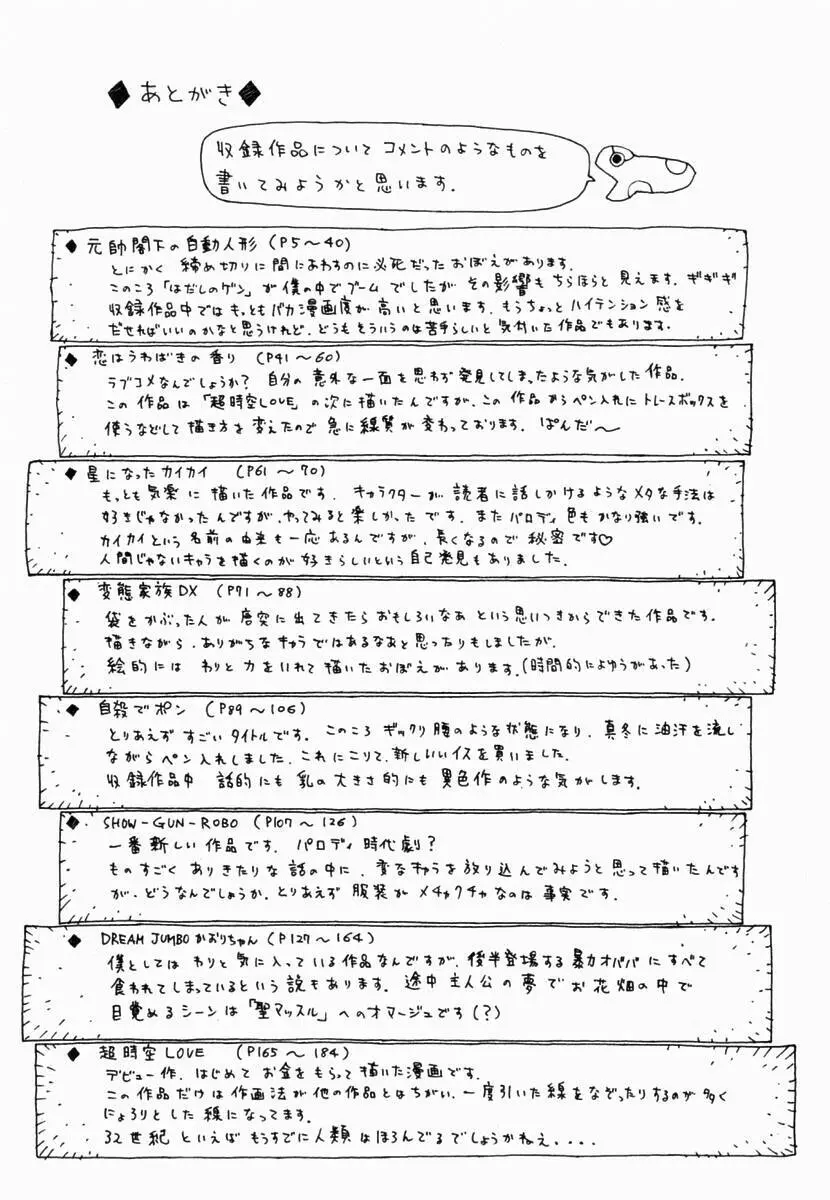 ◆あとがき◆
収録作品について コメントのようなものを
書いてみようかと思います.
◆ 元帥閣下の自動人形 (P5〜40)
とにかく 締め切りに間にあわすのに必死だった おぼえがあります.
このころ「はだしのゲン」が僕の中でブームでしたが その影響も ちらほらと 見えます. ギギギ
収録作品中では もっともバカ漫画度が高いと思います. もうちょっと ハイテンション感を
だせればいいのかなと思うけれど. どうも そういうのは苦手らしいと 気付いた作品でもあります.
◆ 恋はうわばきの香り (P41〜60)
ラブコメなんでしょうか? 自分の意外な一面を思わず発見してしまったような気がした作品.
この作品は「超時空LOVE」の次に描いたんですが、この作品からペン入れにトレースボックスを
使うなどして描き方を変えたので 急に線質が変わっております. ぱんだ〜
◆ 星になったカイカイ (P61〜70)
もっとも気楽に描いた作品です. キャラクターが 読者に話しかけるようなメタな手法は
好きじゃなかったんですが、やってみると楽しかったです. またパロディ色もかなり強いです.
カイカイという名前の由来も一応あるんですが、長くなるので秘密です♡
人間じゃないキャラを描くのが好きらしいという自己発見もありました.
◆ 変態家族DX (P71〜88)
袋をかぶった人が唐突に出てきたらおもしろいなあ という思いつきからできた作品です.
描きながら、ありがちなキャラではあるなあと思ったりもしましたが.
絵的には わりと力をいれて描いたおぼえがあります. (時間的によゆうがあった)
◆ 自殺でポン (P89〜106)
とりあえず すごいタイトルです. このころ ギックリ腰のような状態になり、真冬に油汗を流し
ながらペン入れしました. これにこりて、新しいイスを買いました.
収録作品中 話的にも 乳の大きさ的にも 異色作のような気がします.
◆ SHOW-GUN-ROBO (P107〜126)
一番新しい作品です. パロディ時代劇?
ものすごく ありきたりな話の中に、変なキャラを放り込んでみようと思って描いたんです
が、どうなんでしょうか. とりあえず 服装が メチャクチャなのは 事実です.
◆ DREAM JUMBO かおりちゃん (P127〜164)
僕としては わりと気に入っている作品なんですが、後半登場する暴力オパパにすべて
食われてしまっているという説もあります. 途中主人公の夢でお花畑の中で
目覚めるシーンは「聖マッスル」へのオマージュです(?)
◆ 超時空LOVE (P165〜184)
デビュー作. はじめて お金をもらって描いた漫画です.
この作品だけは作画法が他の作品とはちがい、一度引いた線をなぞったりするのが多く
にょろりとした線になってます.
32世紀といえば もうすでに人類はほろんでるでしょうかねえ....